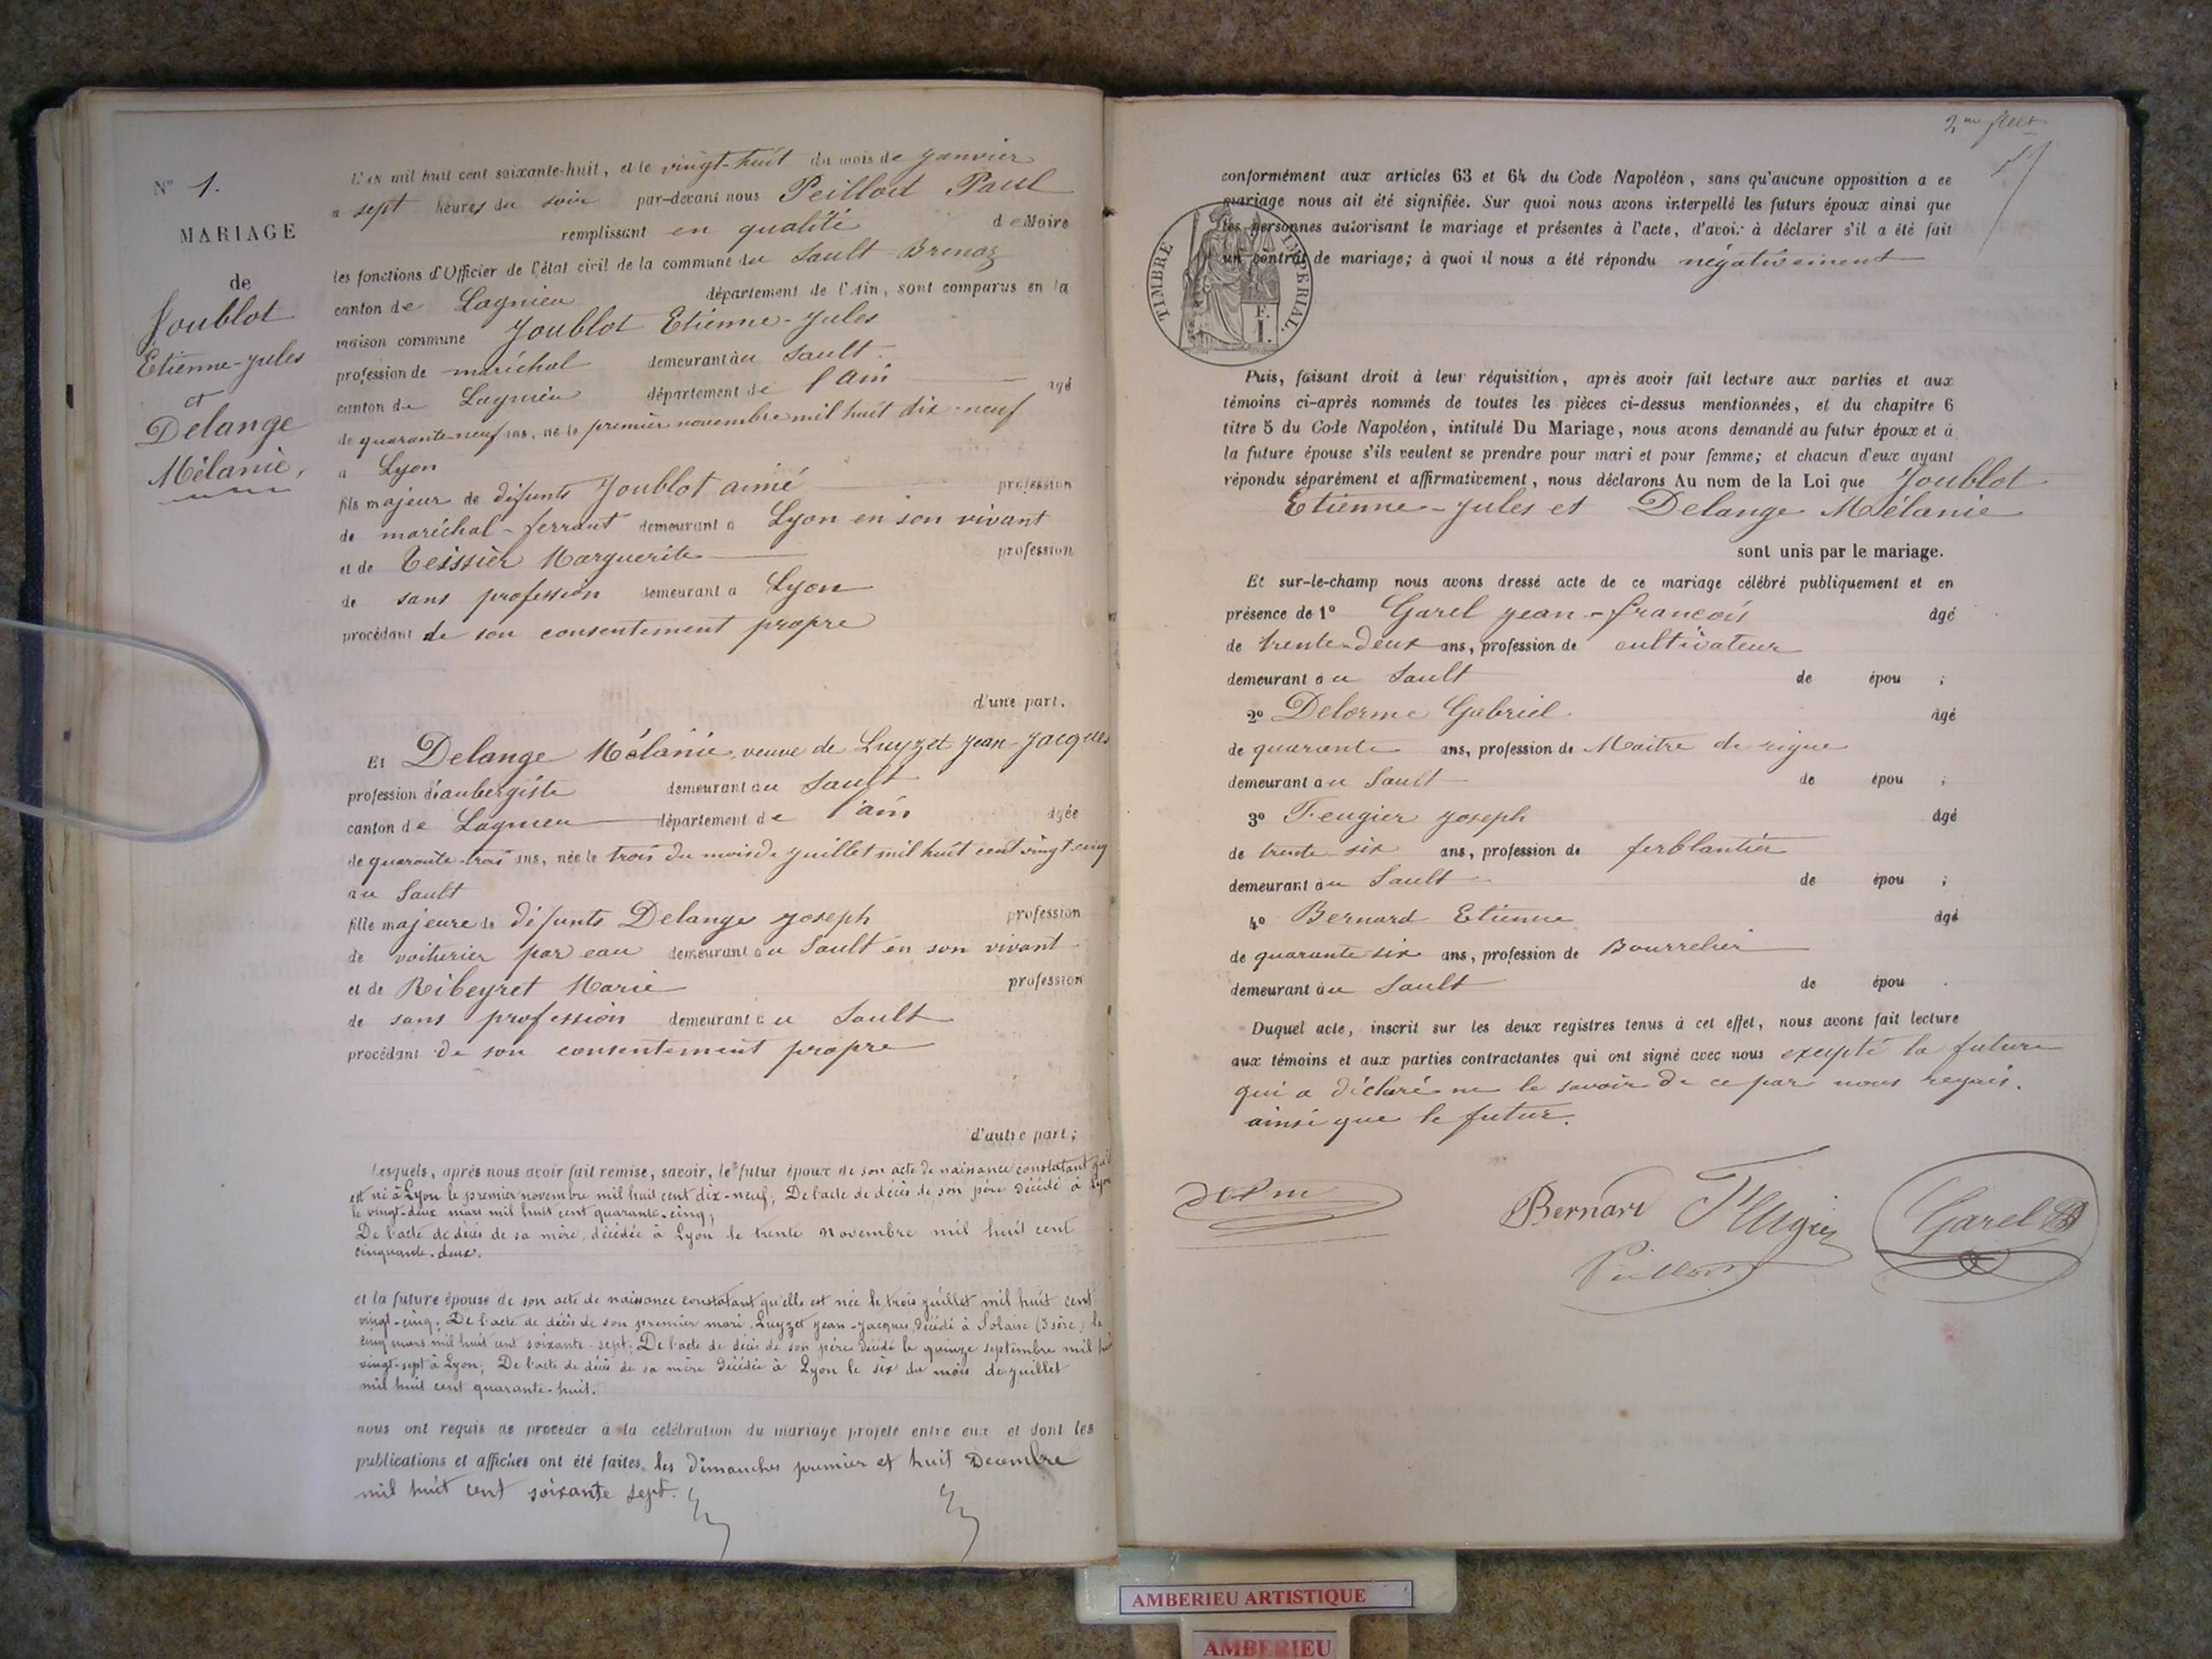 N° 1.
MARIAGE
de
Joublot
Etienne-Jules
et
Delange
Mélanie,
L'AN mil huit cent soixante-huit, et le vingt-huit du mois de Janvier
a sept heures du soir par-devant nous Peillod Paul
remplissant en qualité de Maire
les fonctions d'Officier de l'état civil de la commune du Sault-Brenaz
canton de Lagnieu département de l'Ain, sont comparus en la
maison commune Joublot Etienne-Jules
profession de maréchal demeurant au Sault
canton de Lagnieu département de l'Ain agé
de quarante-neuf ans, né le premier novembre mil huit dix-neuf
a Lyon
fils majeur de défunts Joublot aimé profession
de maréchal-ferrant demeurant a Lyon en son vivant
et de Teissier Marguerite profession
de sans profession demeurant a Lyon
procédant de son consentement propre
d'une part.
Et Delange Mélanie, veuve de Luyzet Jean-Jacques
profession d'aubergiste demeurant au Sault
canton de Lagnieu département de l'ain agée
de quarante-trois ans, née le trois du mois de Juillet mil huit cent vingt-cinq
au Sault
fille majeure de défunts Delange Joseph profession
de voiturier par eau demeurant au Sault en son vivant
et de Ribeyret Marie profession
de sans profession demeurant au Sault
procédant de son consentement propre
d'autre part;
Lesquels, après nous avoir fait remise, savoir, le futur époux de son acte de naissance constatant qu'il
est né à Lyon le premier novembre mil huit cent dix-neuf; De l'acte de décès de son père décédé à Lyon
le vingt-deux mars mil huit cent quarante-cinq;
De l'acte de décès de sa mère, décédée à Lyon le trente Novembre mil huit cent
cinquante-deux.
et la future épouse de son acte de naissance constatant qu'elle est née le trois juillet mil huit cent
vingt-cinq; De l'acte de décès de son premier mari, Luyzet Jean-Jacques, décédé à Solaise (Isère) le
cinq mars mil huit cent soixante-sept; De l'acte de décès de son père décédé le quinze septembre mil huit
vingt-sept à Lyon; De l'acte de décès de sa mère décédée à Lyon le six du mois de juillet
mil huit cent quarante-huit.
nous ont requis de procéder à la célébration du mariage projeté entre eux et dont les
publications et affiches ont été faites les dimanches premier et huit Decembre
mil huit cent soixante sept.
2me
conformément aux articles 63 et 64 du Code Napoléon, sans qu'aucune opposition a ce
mariage nous ait été signifiée. Sur quoi nous avons interpellé les futurs époux ainsi que
les personnes autorisant le mariage et présentes à l'acte, d'avoir à déclarer s'il a été fait
un contrat de mariage; à quoi il nous a été répondu négativement
TIMBRE IMPERIAL.
F.
1.
Puis, faisant droit à leur réquisition, après avoir fait lecture aux parties et aux
témoins ci-après nommés de toutes les pièces ci-dessus mentionnées, et du chapitre 6
titre 5 du Code Napoléon, intitulé Du Mariage, nous avons demandé au futur époux et à
la future épouse s'ils veulent se prendre pour mari et pour femme; et chacun d'eux ayant
répondu séparément et affirmativement, nous déclarons Au nom de la Loi que Joublot
Etienne-Jules et Delange Mélanie
sont unis par le mariage.
Et sur-le-champ nous avons dressé acte de ce mariage célébré publiquement et en
présence de 1° Garel Jean-francois agé
de trente-deux ans, profession de cultivateur
demeurant au Sault de épou ;
2° Delorme Gabriel agé
de quarante ans, profession de Maitre de rigue
demeurant au Sault de épou ;
3° Feugier Joseph agé
de trente six ans, profession de ferblantier
demeurant au Sault de épou ;
4° Bernard Etienne agé
de quarante six ans, profession de Bourrelier
demeurant au Sault de épou .
Duquel acte, inscrit sur les deux registres tenus à cet effet, nous avons fait lecture
aux témoins et aux parties contractantes qui ont signé avec nous excepté la future
qui a déclaré ne le savoir de ce par nous requis.
ainsi que le futur.
Bernard Feugier Garel
Peillod
AMBERIEU ARTISTIQUE
AMBERIEU